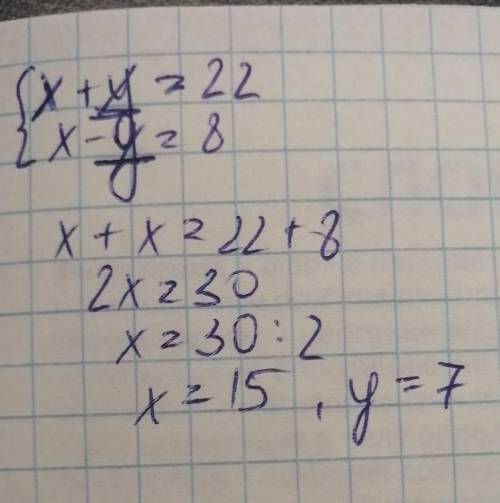 x + y = 22
x - y = 8
x + x = 22 + 8
2x = 30
x = 30 : 2
x = 15, y = 7